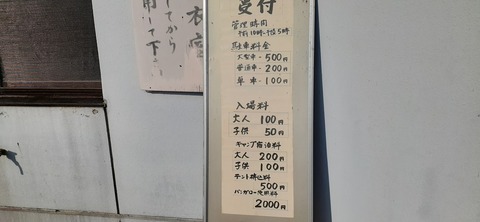 受付
管理時間
午前10時~午後5時
駐車料金
大型車-500円
普通車-200円
単車-100円
入場料
大人 100円
子供 50円
キャンプ宿泊料
大人 200円
子供 100円
テント持込料
500円
バンガロー使用料
2000円
てから
して下さい
衣室